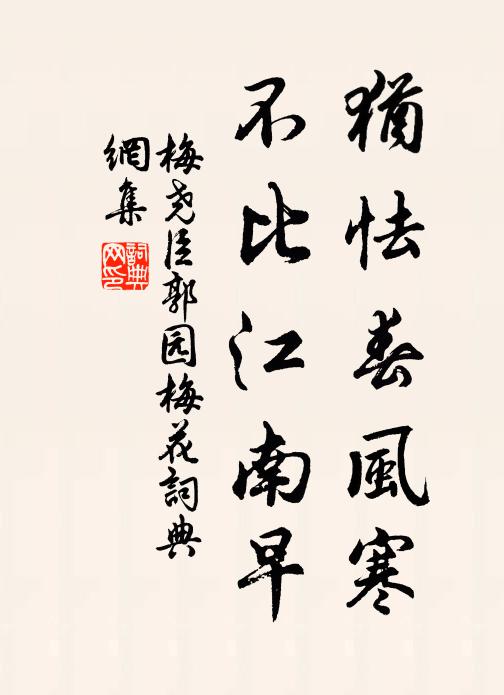 猶怯春風寒
不比江南早
梅尧臣郭园梅花詞典
網集
詞典
网印